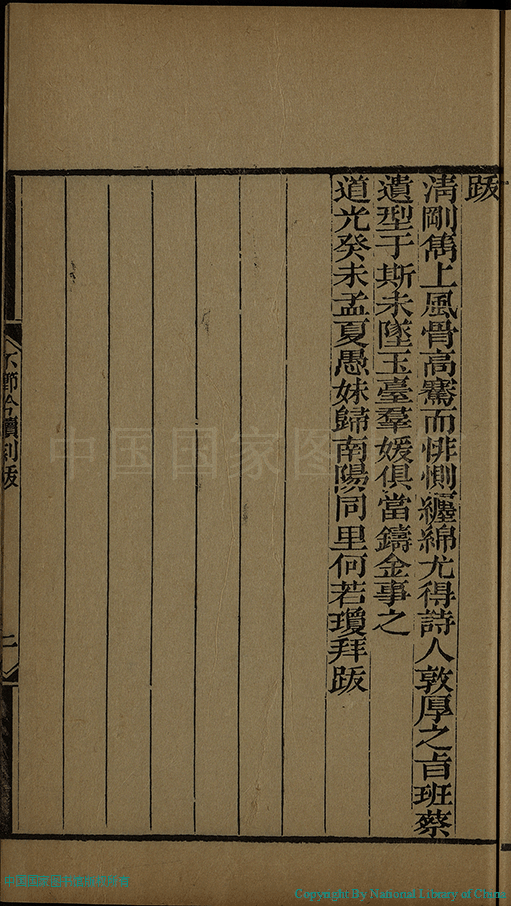 跋
清剛雋上風骨高騫而悱惻纏綿尤得詩人敦厚之旨班蔡
遺型于斯未墜玉臺羣媛俱當鑄金事之
道光癸未孟夏愚妹歸南陽同里何若瓊拜跋
吟續刻跋
二
中国国家图
Copyright By National Library of China